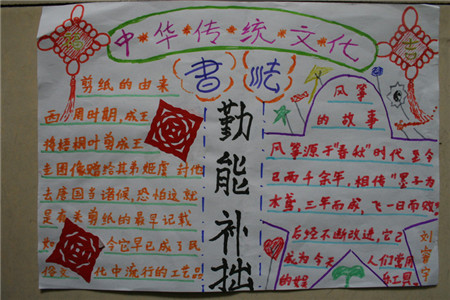 中华传统文化
吉
书法
剪纸的由来
西周时期,成王
将梧桐叶剪成玉
圭图像赠给其弟姬虞 封他
去唐国当诸侯,恐怕这就
是有关剪纸的最早记载
如 今它早已成了民
俗文 化中流行的工艺品
勤能补拙
风筝
的故事
风筝源于"春秋"时代 至今
已两千余年,相传"墨子为
木鸢,三年而成,飞一日而败"
后经不断改进,它已
成为今天 人们常用
的娱 乐工具。